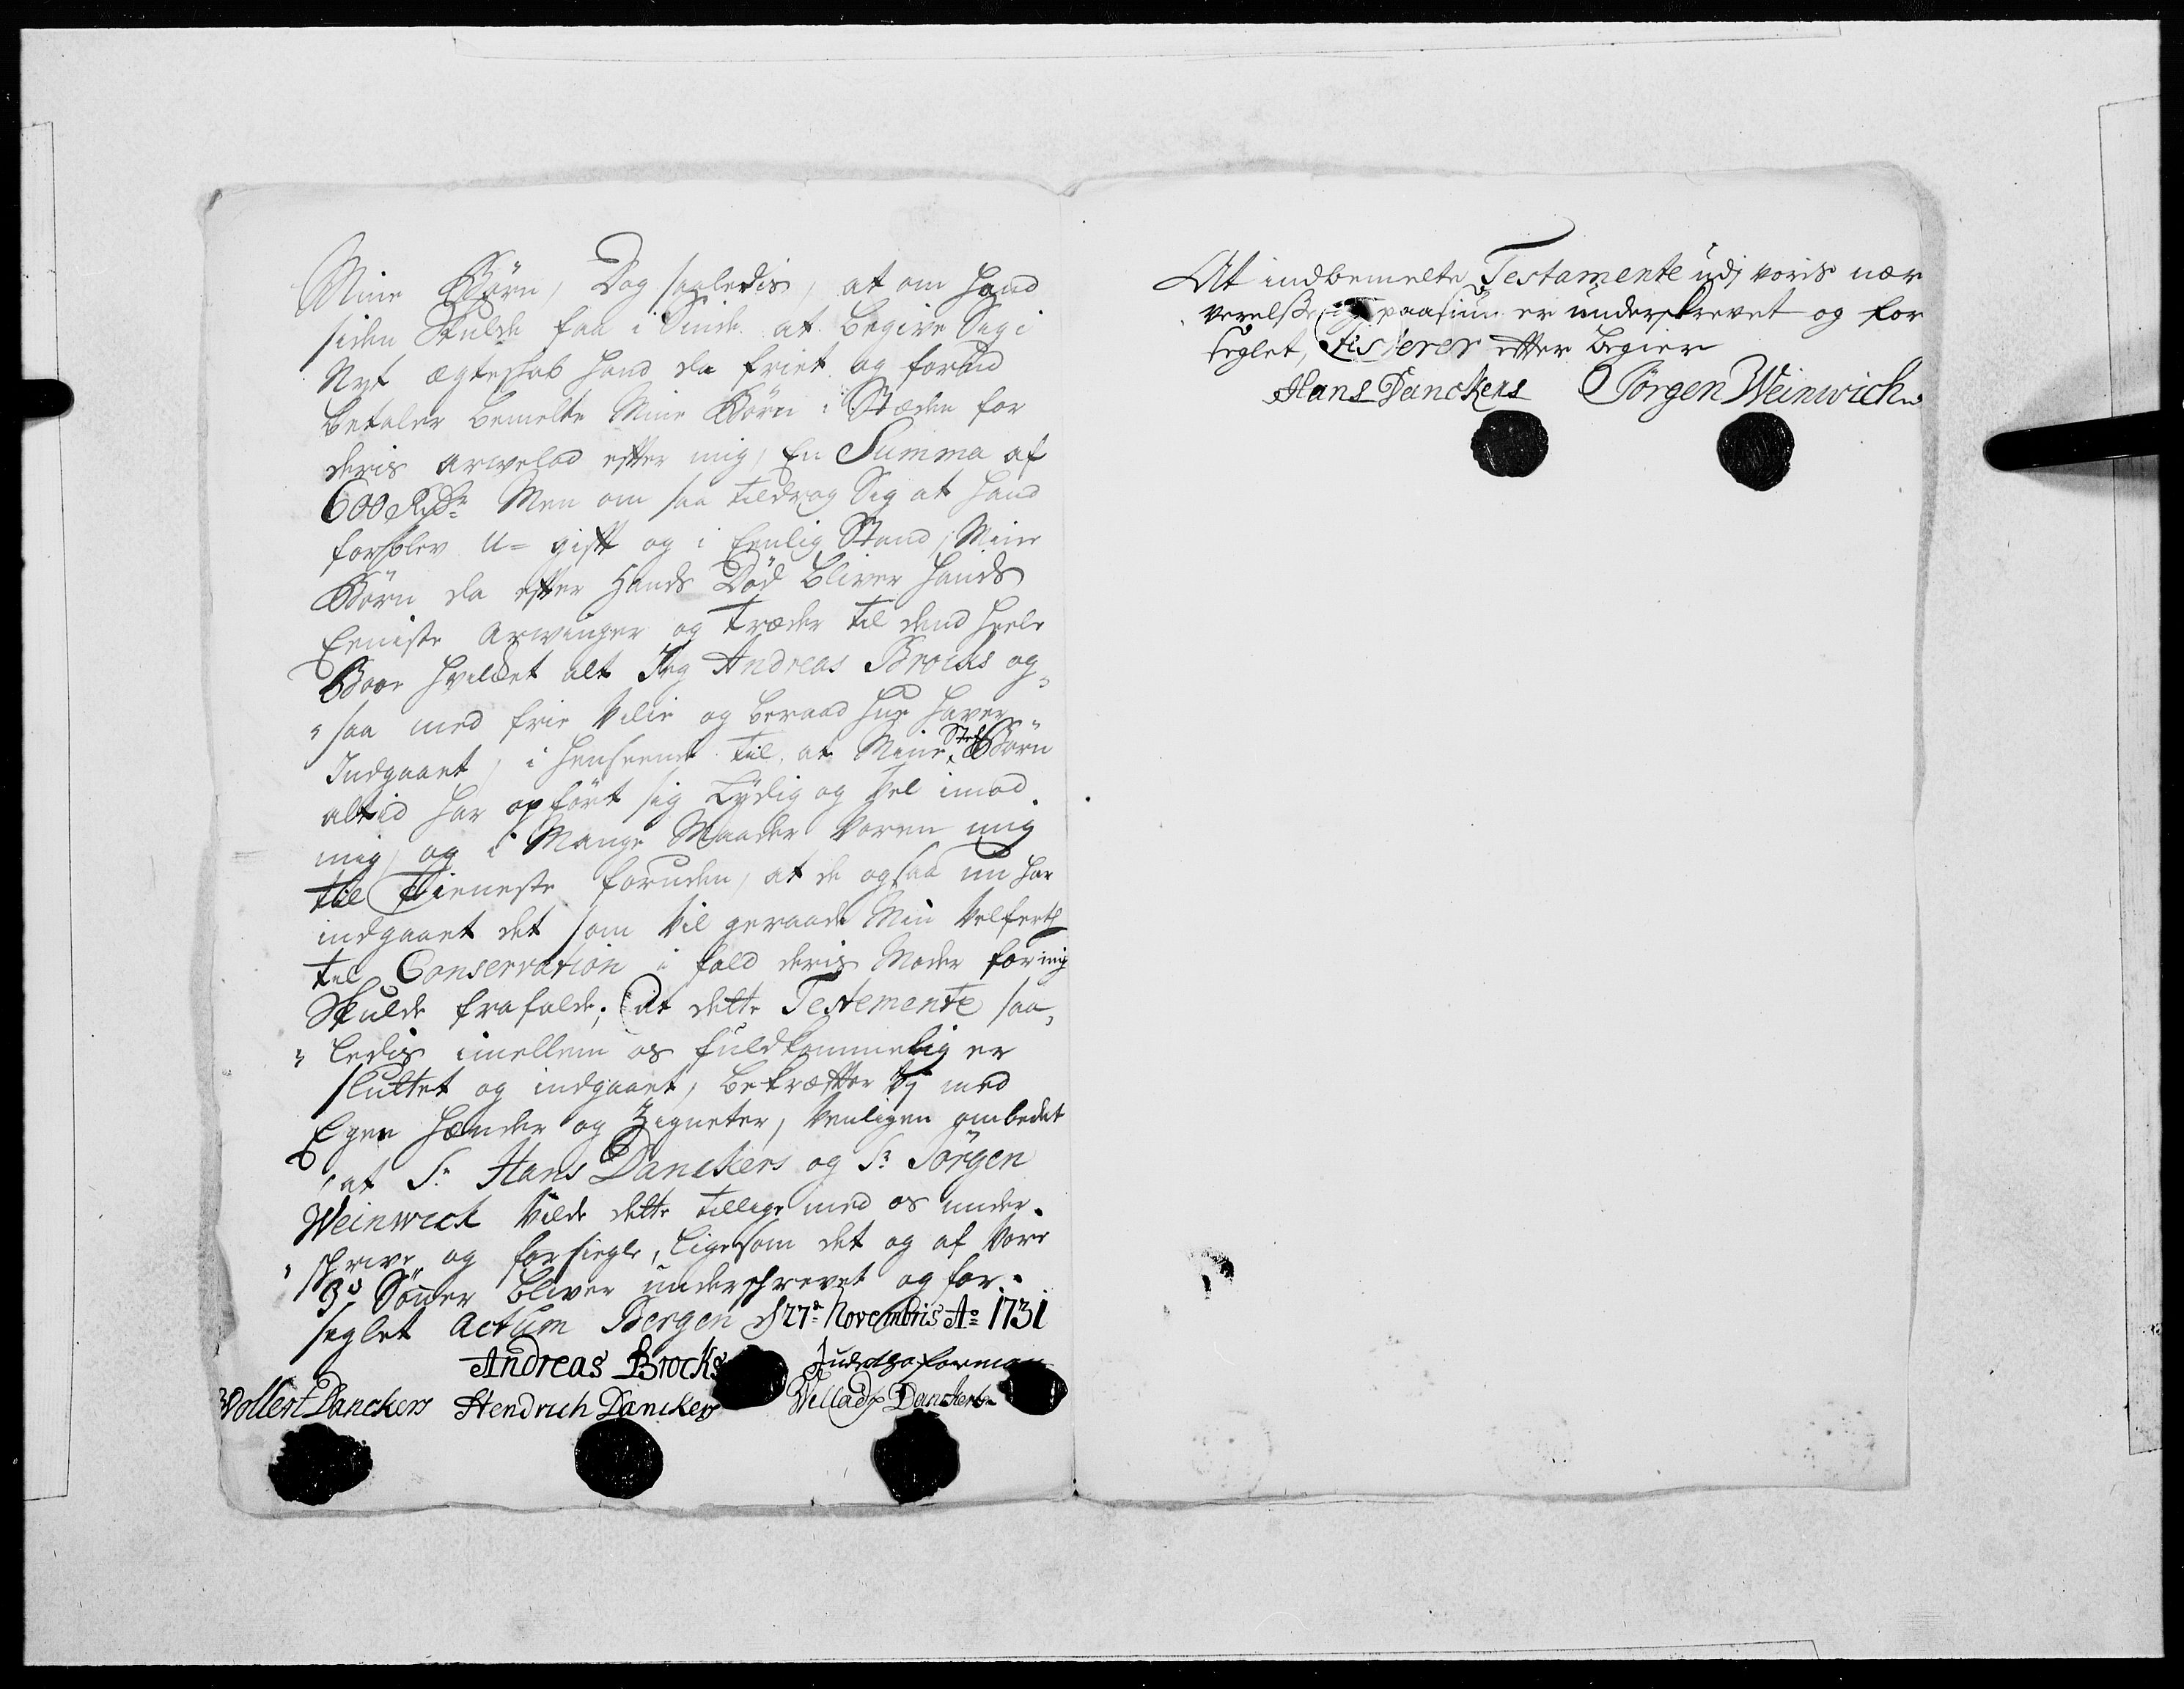 Mine Börn, Dog saaledis, at om hand
siden Skulde faa i Sinde at begive Sig i
Nyt ægteskab hand da friet og forud
betaler bemelte Mine Börn i Stæden for
deris arwelod efter mig, En Summa af
600 Rdr Men om saa tildrog Sig at hand
forblev U= gift og i Eenlig Stand, Mine
Börn da efter Hands Död bliver hands
Eeniste Arwinger og træder til dend heele
Boe hvilket alt Jeg Andreas Brocks og,,
,,saa med frie Vilie og beraad hue haver
Indgaaet, i henseende til at Mine Stif Börn
altid har opfört sig Lydig og Vel imod
mig, og i Mange Maader Været mig
til Tieneste foruden, at de ogsaa nu har
indgaaet det som Vil geraade Min Velferth
til Conservation i fald deris Moder for mig
Skulde frafalde; at dette Testemente saa,,
,,ledis imellem os fuldkommelig er
sluttet og indgaaet, bekræfter Vj med
Egne Hænder og Zigneter, Venligen ombedet
at Sr. Hans Danckers og Sr. Jörgen
Weinwick Vilde dette tillige med os under,,
,,skrive og forsiegle, ligesom det og af Vore
3de Sönner bliver underschrevet og for,,
seglet Actum Bergen d 27de Novembris Ao 1731
Andreas Brocks Judetha Forman
Wollert Danckers Hendrich Danckers Wellads Danckers
At indbemelte Testamente udj voris nær
verelse, og paasiun er underskrevet og for
seglet, Atisterer effter begier
Hans Danckers Jörgen Weinwich